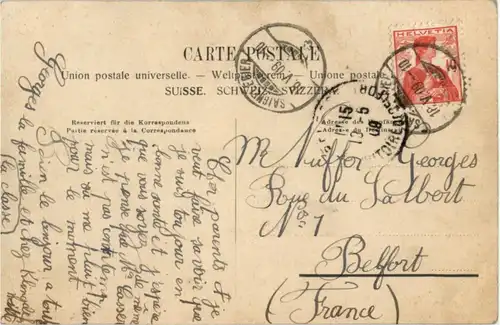 CARTE POSTALE
Union postale universelle. — Weltpostverein. — Unione postale
SUISSE. SCHWEIZ. SVIZZERA.
Reserviert für die Korrespondenz
Partie réservée à la Correspondance
HELVETIA
SAIGNELÉGIER
Cher parents et je
veut faire savoir que
je suis toujour en
bonne santé et j'espère
que vous soyez de même
je pense que
n'est pas content
mais sa me plait bien
pour le moment
bien le bonjour a tout
la famille et chez
Georges
(la classe)
M Nuffer Georges
Rue du Salbert
N° 1
Belfort
(France)